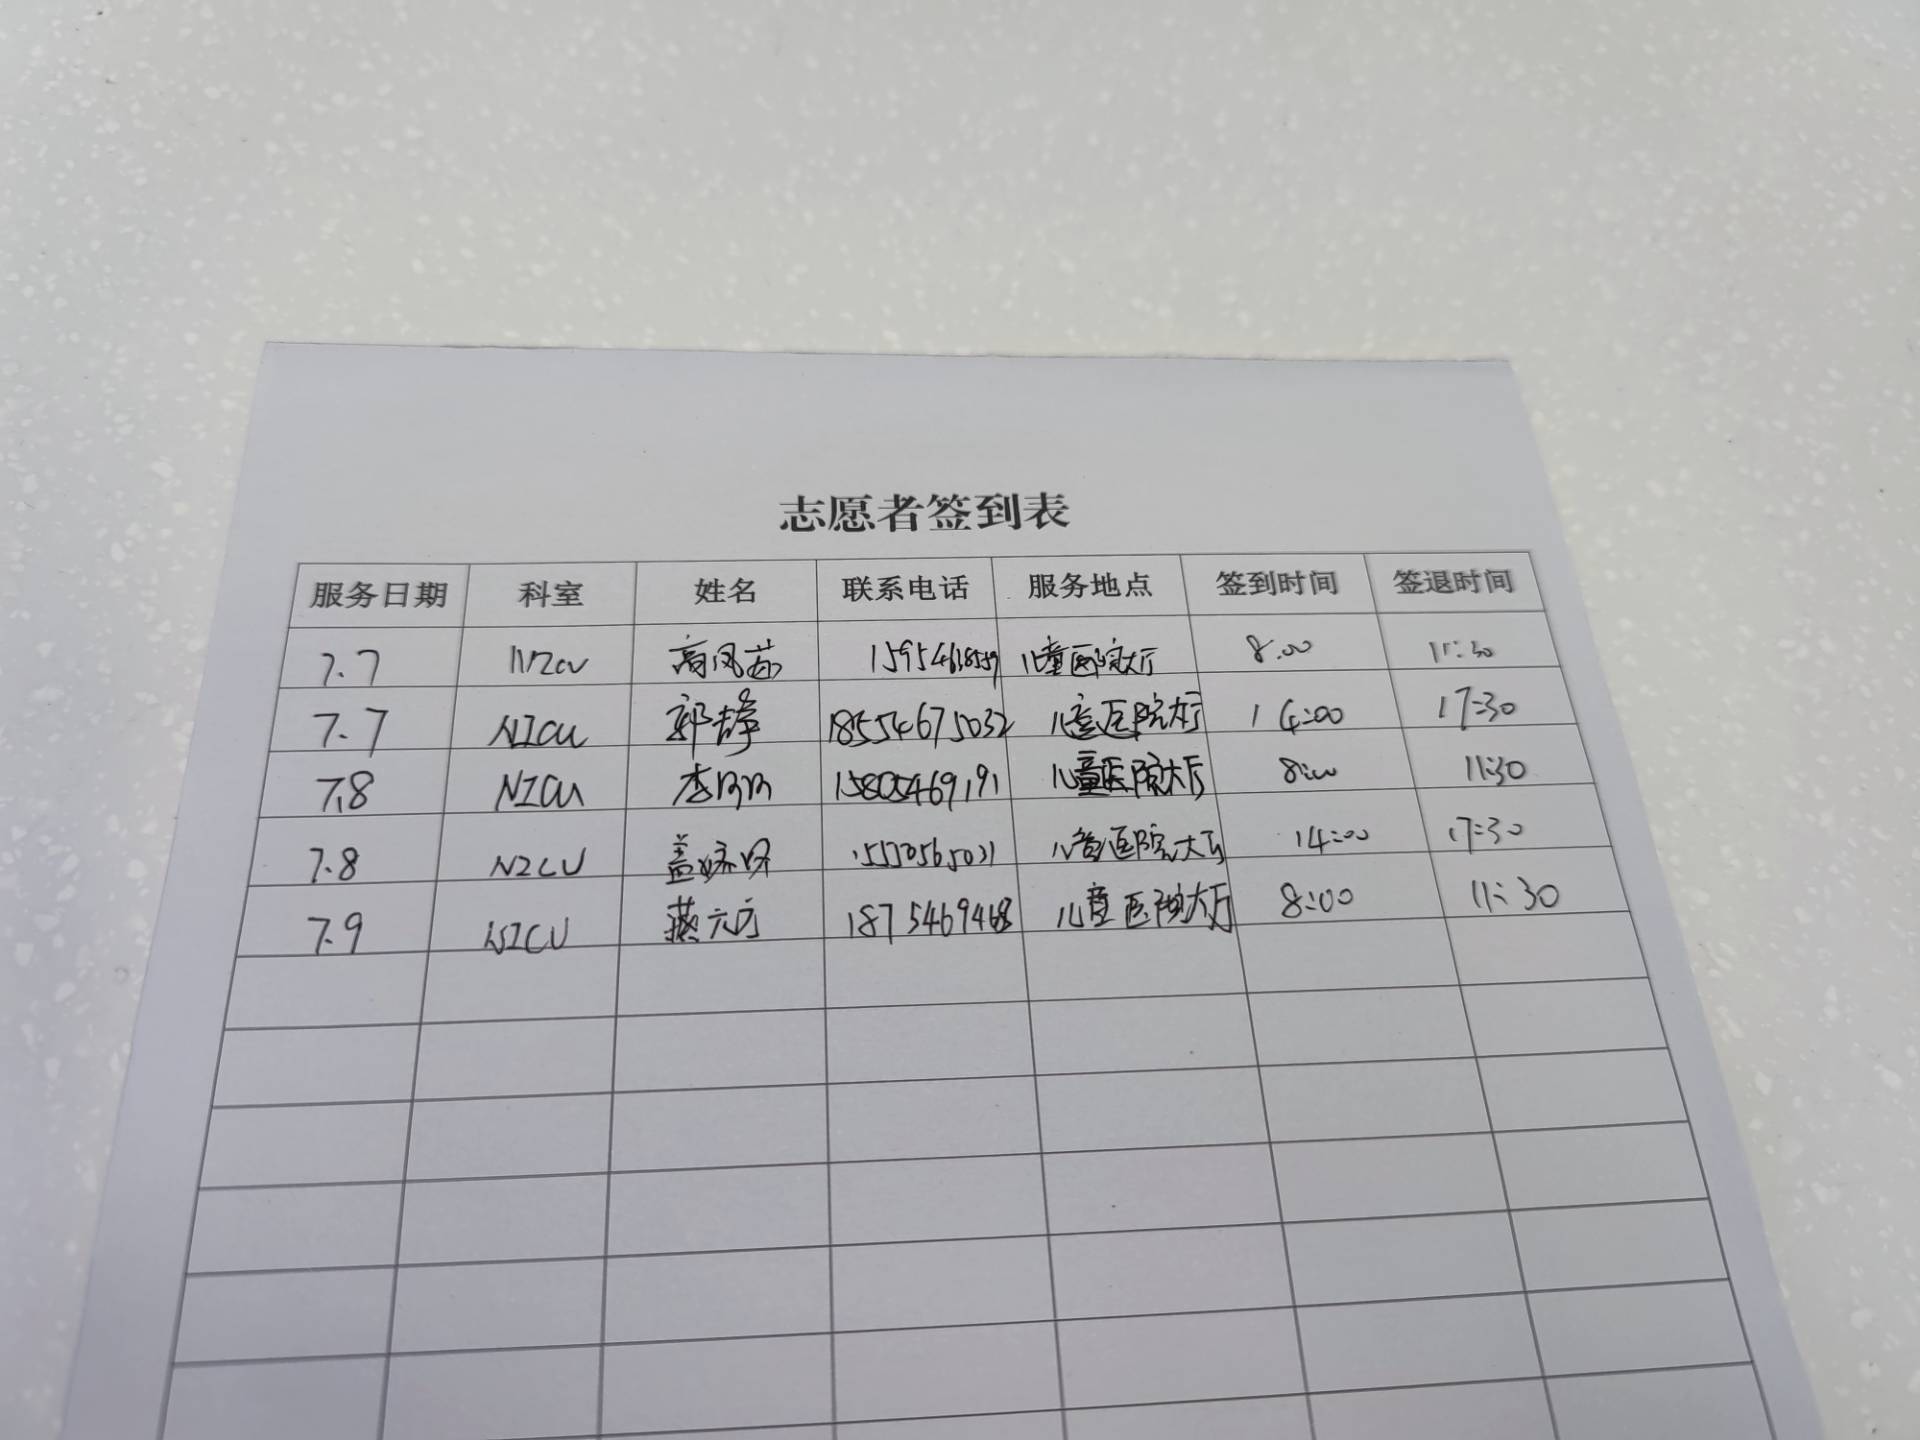 志愿者签到表
服务日期 科室 姓名 联系电话 服务地点 签到时间 签退时间
7.7 NICU 高凤茹 儿童医院大厅 8:00 11:30
7.7 NICU 郭静 18554675032 儿童医院大厅 14:00 17:30
7.8 NICU 李 15805469191 儿童医院大厅 8:00 11:30
7.8 NICU 盖 儿童医院大厅 14:00 17:30
7.9 NICU 燕 儿童医院大厅 8:00 11:30